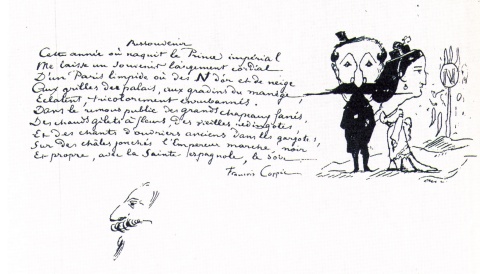 Ressouvenir
Cette année où naquit le Prince impérial
Me laisse un souvenir largement cordial
D'un Paris limpide où des N d'or et de neige
Aux grilles du palais, aux gradins du manège,
Eclatent, tricolorement enrubannés.
Dans le remous public des grands chapeaux fanés,
Des chauds gilets à fleurs, des vieilles redingotes,
Et des chants d'ouvriers anciens dans les gargotes,
Sur des châles jonchés l'Empereur marche, noir
Et propre, avec la Sainte espagnole, le soir
Francis Coppée
N